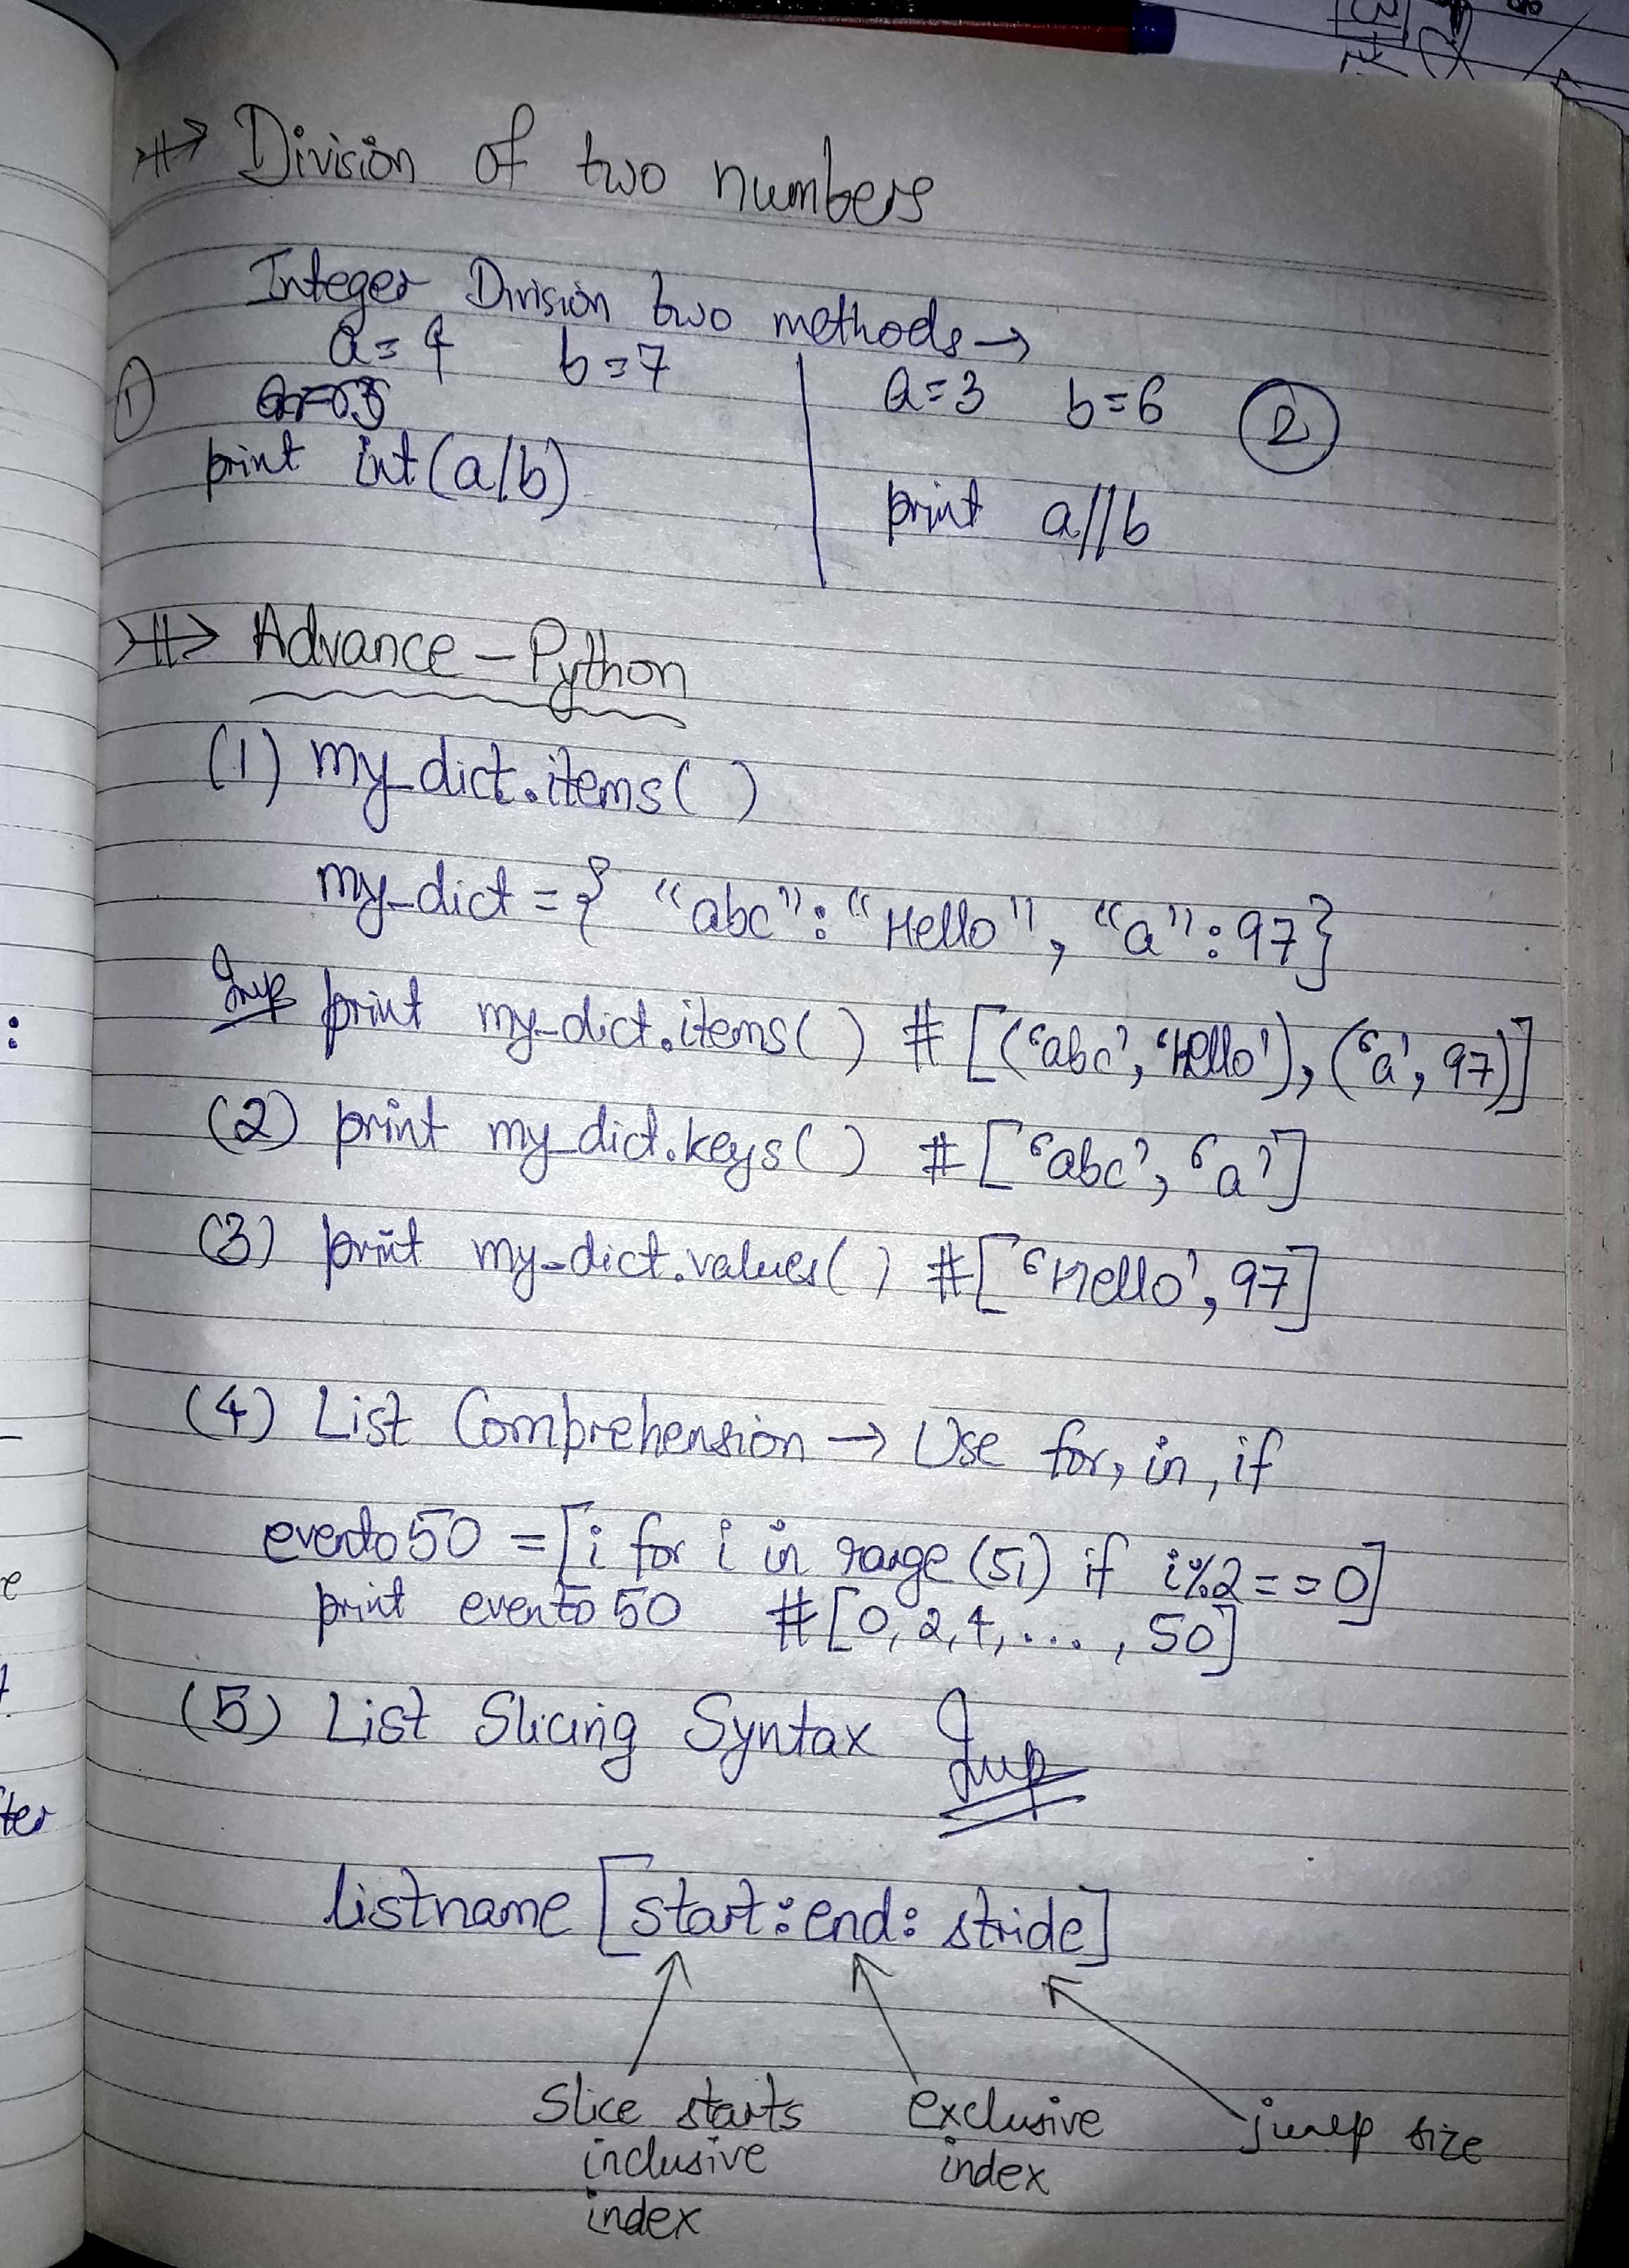 Division of two numbers
Integer Division two methods →
a = 4 b = 7
① print int(a/b)
a = 3 b = 6 ②
print a//b
Advance - Python
(1) my_dict.items( )
my_dict = { "abc" : "Hello", "a" : 97}
Imp print my_dict.items( ) # [('abc', 'Hello'), ('a', 97)]
(2) print my_dict.keys( ) # ['abc', 'a']
(3) print my_dict.values( ) # ['Hello', 97]
(4) List Comprehension → Use for, in, if
evento50 = [i for i in range (51) if i%2 == 0]
print evento50 # [0, 2, 4, ..., 50]
(5) List Slicing Syntax Imp
listname [start : end : stride]
Slice starts
inclusive
index
exclusive
index
jump size